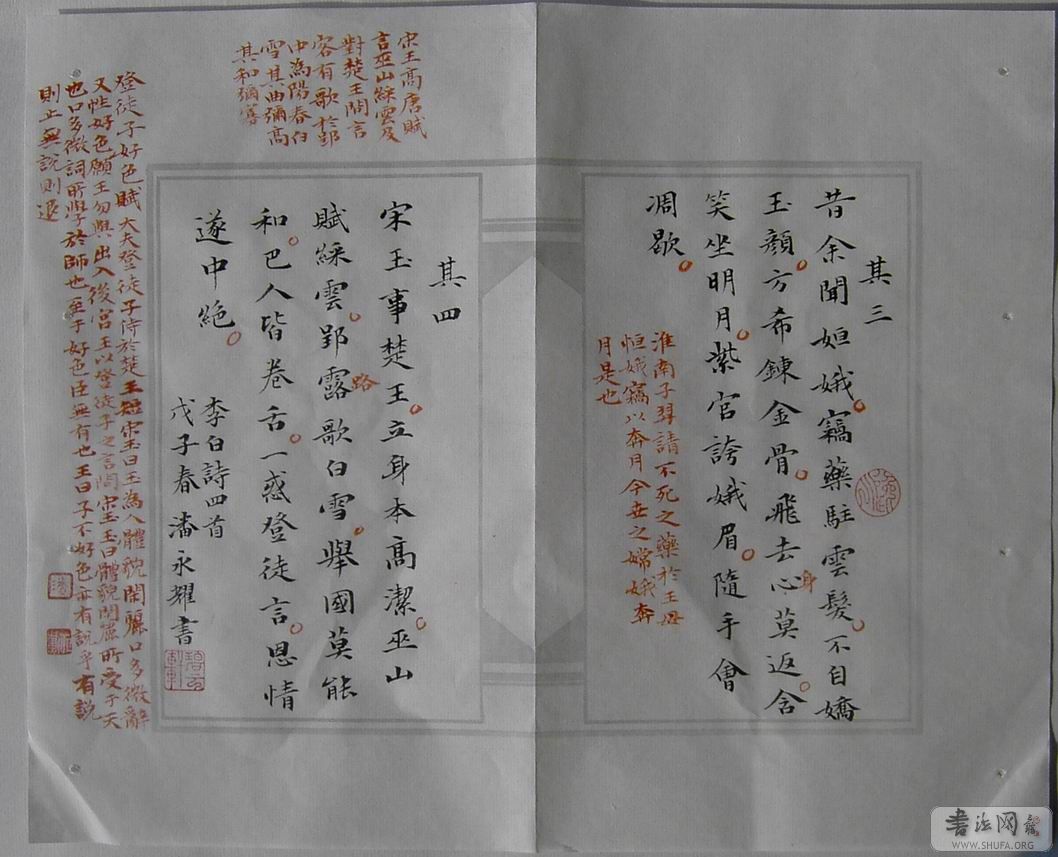 其三
昔余聞姮娥竊藥駐雲髮不自嬌
玉顔方希鍊金骨飛去心莫返含
身
笑坐明月紫宫誇娥眉隨手會
凋歇
淮南子羿請不死之藥於王母
恒娥竊以奔月今世之嫦娥奔
月是也
其四
宋玉事楚王立身本高潔巫山
賦綵雲郢露歌白雪舉國莫能
路
和巴人皆卷舌一惑登徒言恩情
遂中絶
李白詩四首
戊子春潘永耀書
宋玉高唐賦
言巫山綵雲及
對楚王問言
客有歌於郢
中為陽春白
雪其曲彌高
其和彌寡
登徒子好色賦大夫登徒子侍於楚王短宋玉曰玉為人體貌閑麗口多微辭
又性好色願王勿與出入後宫王以登徒子之言問宋玉玉曰體貌閑麗所受于天
也口多微詞所學於師也至于好色臣無有也王曰子不好色亦有説乎有説
則止無説則退
書法网
WWW.SHUFA.ORG